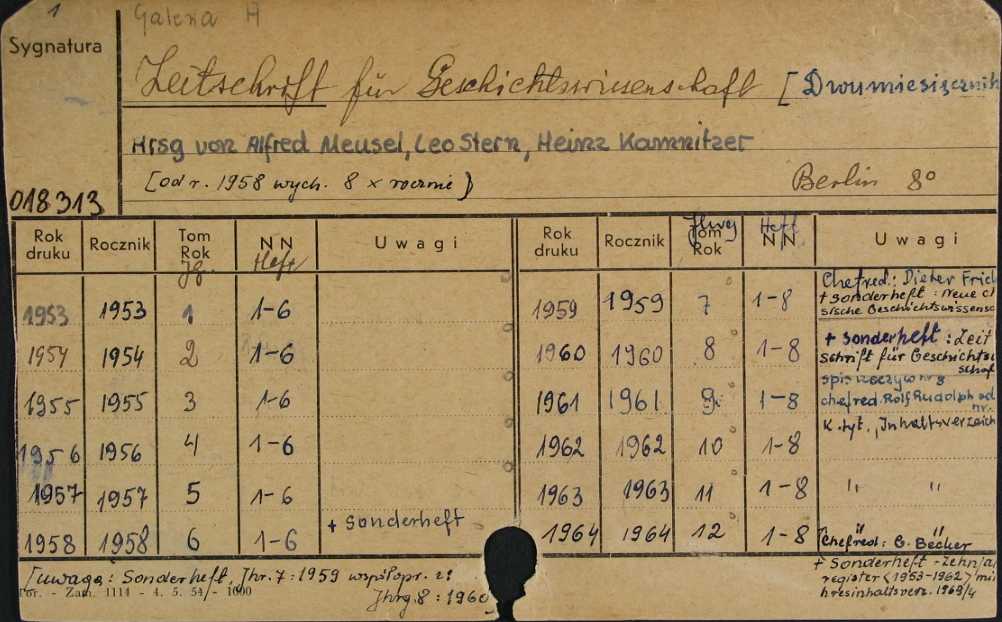 1 Galeria A
Sygnatura
Zeitschrift für Geschichtswissenschaft [Dwumiesięcznik
Hrsg von Alfred Meusel, Leo Stern, Heinz Kamnitzer
[od r. 1958 wych. 8 x rocznie)
Berlin 8°
018313
Rok druku Rocznik Tom Rok Jg. N N Heft Uwagi Rok druku Rocznik Tom Rok N N Heft Uwagi
1953 1953 1 1-6 1959 1959 7 1-8 Chefred.: Dieter Frick
+ Sonderheft: Neue ch
sische Geschichtswissensc
1954 1954 2 1-6 1960 1960 8 1-8 + Sonderheft: Zeit
schrift für Geschichtsw
schaf
1955 1955 3 1-6 1961 1961 9 1-8 spis nr 8
chefred. Rolf Rudolph od
nr.
1956 1956 4 1-6 1962 1962 10 1-8 K. tyt. "Inhaltsverzeich
1957 1957 5 1-6 1963 1963 11 1-8 " "
1958 1958 6 1-6 + Sonderheft 1964 1964 12 1-8 "
Chefred: G. Becker
[uwaga: Sonderheft, Jhr. 7: 1959 współopr. z:
Jhrg. 8: 1960
For. - Zam. 1114 - 4. 5. 54/- 1000
+ Sonderheft - Zehnja
register <1953-1962> mi
hresinhaltsverz. 1963/4